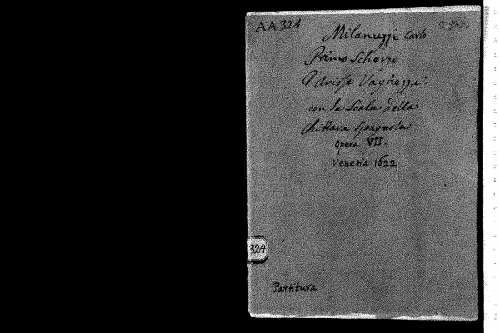 AA 324
Milanuzzi Carlo
Primo Scherzo
con la Scala della
Chittara Spagnola
opera VII.
Venetia 1622
324
Partitura